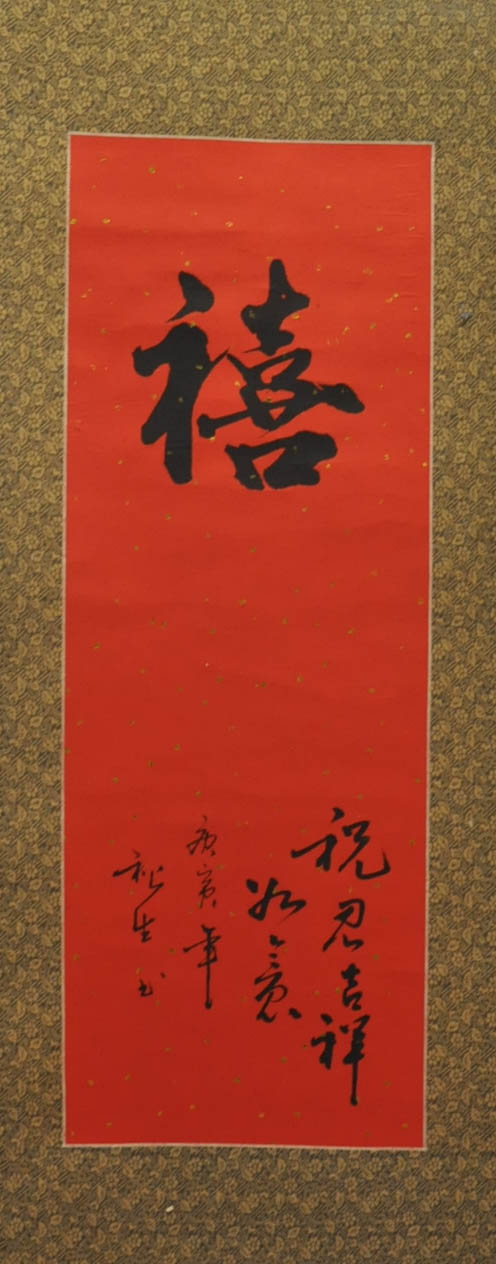 禧
祝君吉祥
如意
庚寅年
秋生书